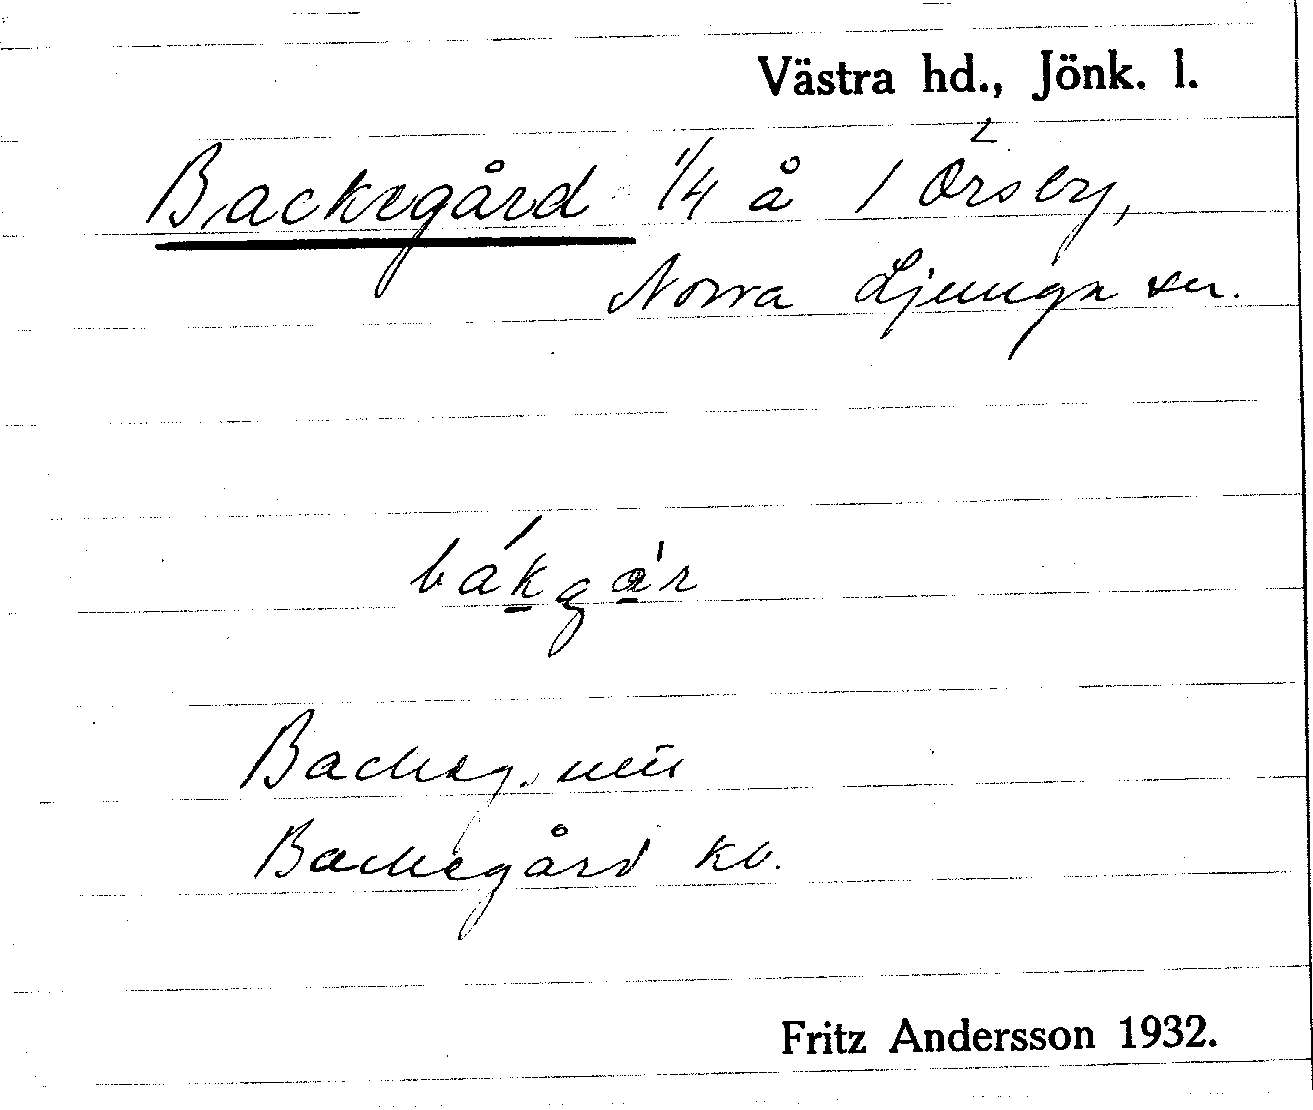 Västra hd., Jönk. l.
Backegård 1/4 å 1 Örsby,
Norra Ljunga sn.
bákgár
Backeg.
Backegård kb.
Fritz Andersson 1932.